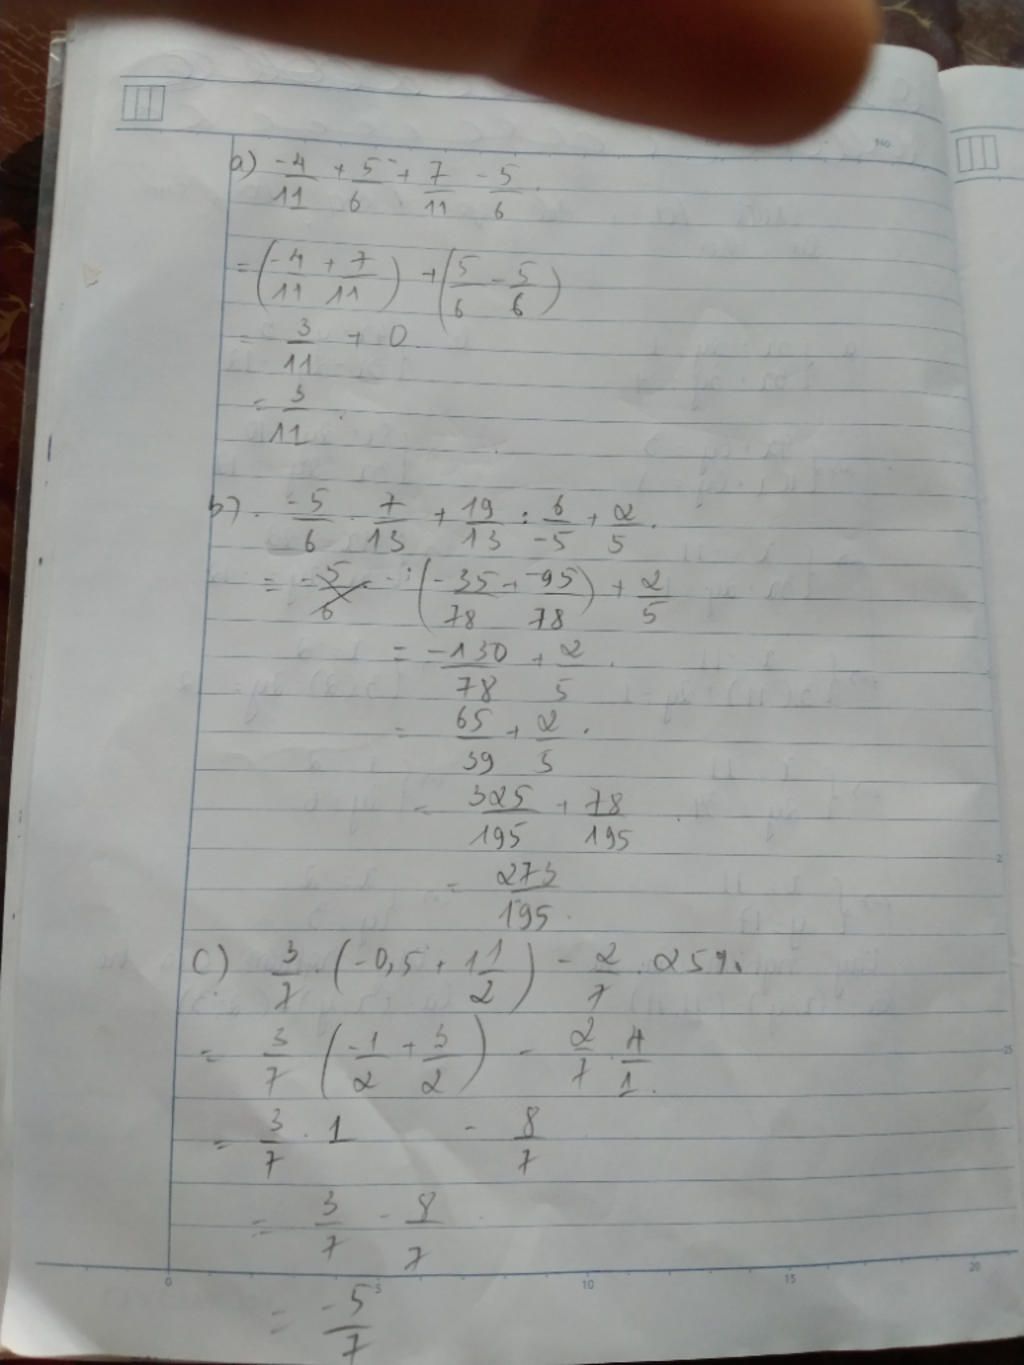 a) -4/11 + 5/6 + 7/11 - 5/6.
= (-4/11 + 7/11) + (5/6 - 5/6)
= 3/11 + 0
= 3/11.
b). -5/6 . 7/13 + 19/13 : 6/-5 + 2/5.
= (-35/78 + -95/78) + 2/5
= -130/78 + 2/5.
= 65/39 + 2/5.
= 325/195 + 78/195.
= 273/195.
c) 3/7 . (-0,5 + 1 1/2) - 2/7 . 25%.
= 3/7 (-1/2 + 3/2) - 2/7 . 4/1.
= 3/7 . 1 - 8/7
= 3/7 - 8/7
0 5 10 15 20
= -5/7
NO.
25